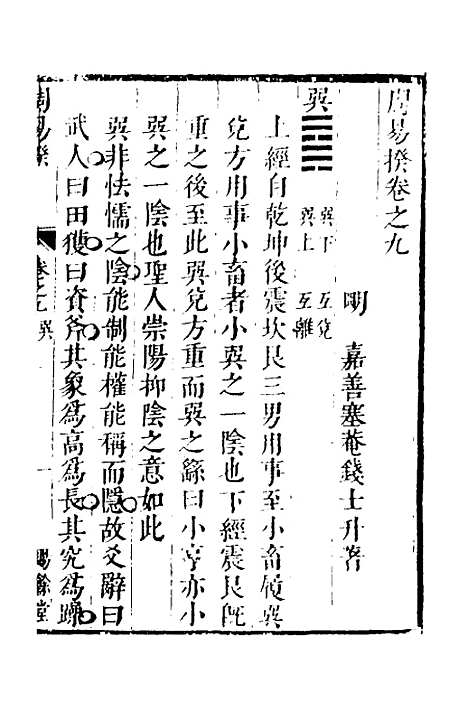 周易揆卷之九
明　嘉善塞菴錢士升著
巽 巽下 巽上 互兌 互離
上經自乾坤後震坎艮三男用事至小畜傎巽
兌方用事小畜者小巽之一陰也下經震艮旣
重之後至此巽兌方重而巽之繇曰小亨亦小
巽之一陰也聖人崇陽抑陰之意如此
巽非怯懦之陰能制能權能稱而隱故爻辭曰
武人曰田獲曰資斧其象爲高爲長其究爲躁
周易揆 卷之九 巽 一 賜餘堂